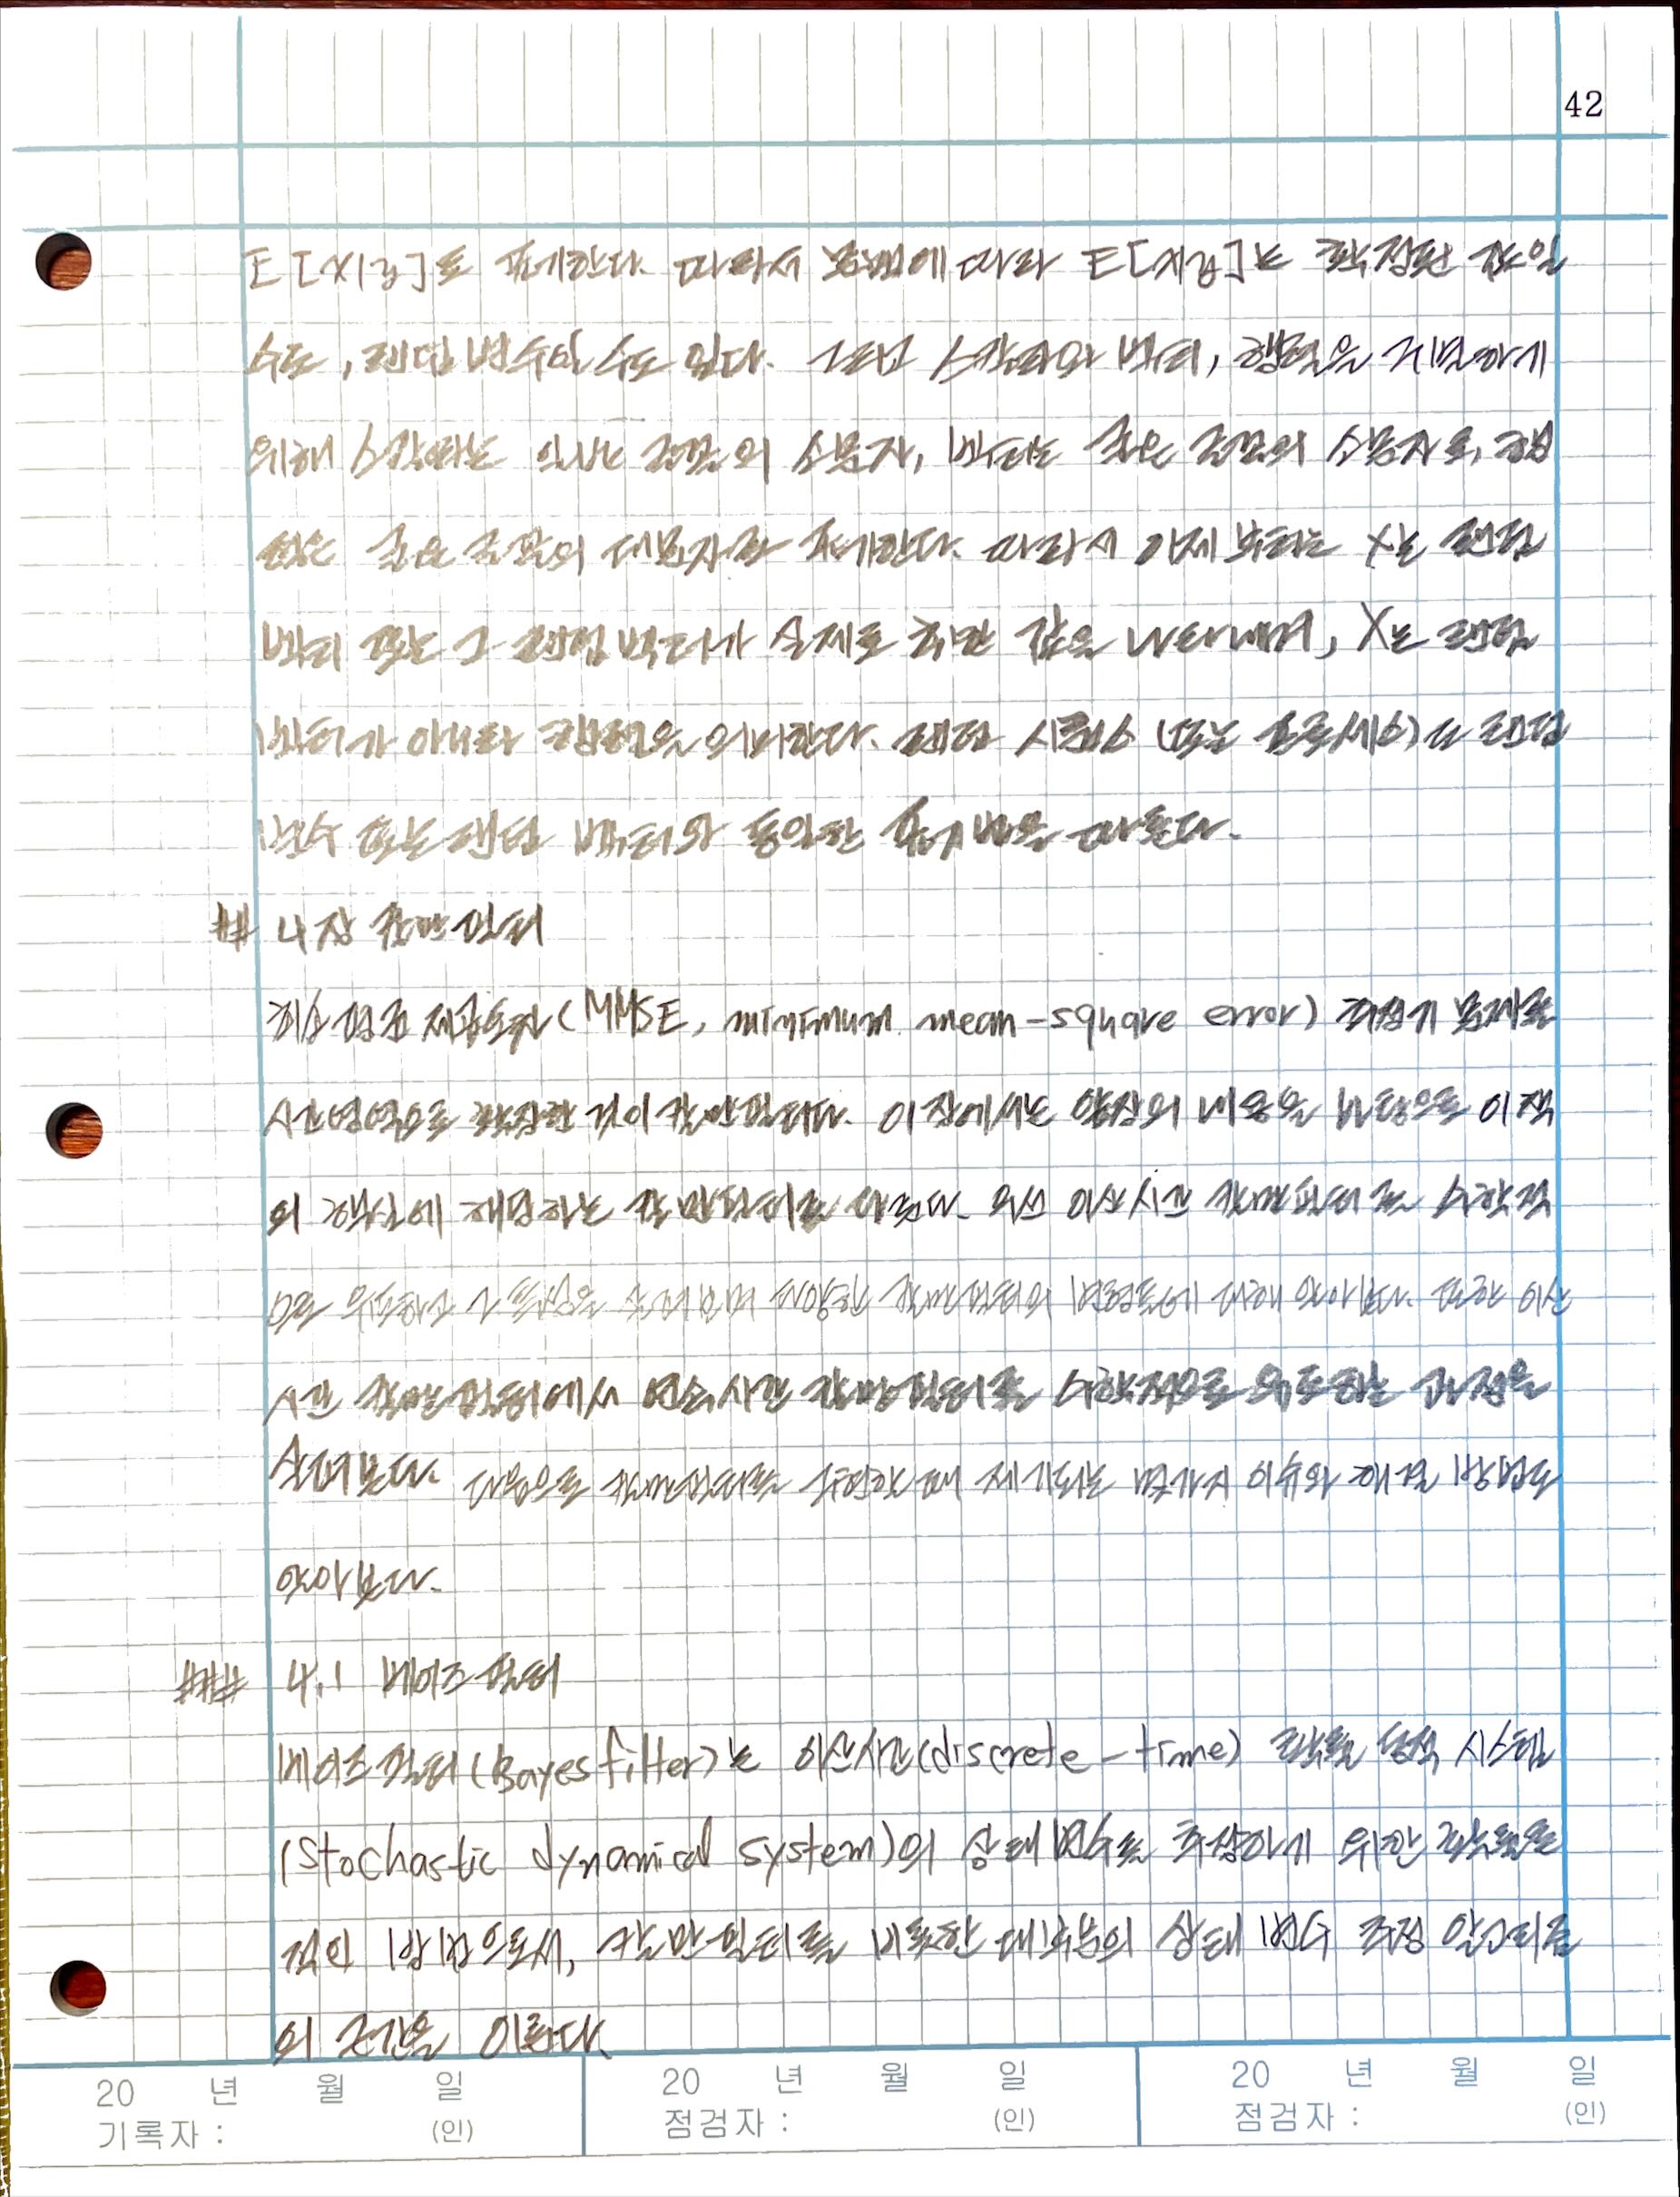 42
E[x|z]로 표기한다. 따라서 문맥에 따라 E[x|z]는 확정된 값일
수도, 랜덤 변수일 수도 있다. 그리고 스칼라와 벡터, 행렬을 구분하기
위해 스칼라는 일반 글꼴의 소문자, 벡터는 굵은 글꼴의 소문자로, 행
렬은 굵은 글꼴의 대문자로 표기한다. 따라서 이제부터는 x는 랜덤
벡터 또는 그 랜덤 벡터가 실제로 취한 값을 나타내며, X는 랜덤
벡터가 아니라 행렬을 의미한다. 랜덤 시퀀스 (또는 프로세스)도 랜덤
변수 또는 랜덤 벡터와 동일한 표기법을 따른다.
## 4장 칼만필터
최소 평균 제곱오차(MMSE, minimum mean-square error) 추정기 문제를
시간영역으로 확장한 것이 칼만필터다. 이 장에서는 앞장의 내용을 바탕으로 이 책
의 핵심에 해당하는 칼만필터를 다룬다. 우선 이산시간 칼만필터를 수학적
으로 유도하고 그 특성을 살펴보며 다양한 칼만필터의 변형들에 대해 알아본다. 또한 이산
시간 칼만필터에서 연속시간 칼만필터를 수학적으로 유도하는 과정을
살펴본다. 다음으로 칼만필터를 구현할 때 제기되는 몇가지 이슈와 해결 방법도
알아본다.
### 4.1 베이즈 필터
베이즈 필터(Bayes filter)는 이산시간(discrete-time) 확률 동적 시스템
(Stochastic dynamical system)의 상태변수를 추정하기 위한 확률론
적인 방법으로서, 칼만필터를 비롯한 대부분의 상태 변수 추정 알고리즘
의 근간을 이룬다.
20 년 월 일 20 년 월 일 20 년 월 일
기록자 : (인) 점검자 : (인) 점검자 : (인)